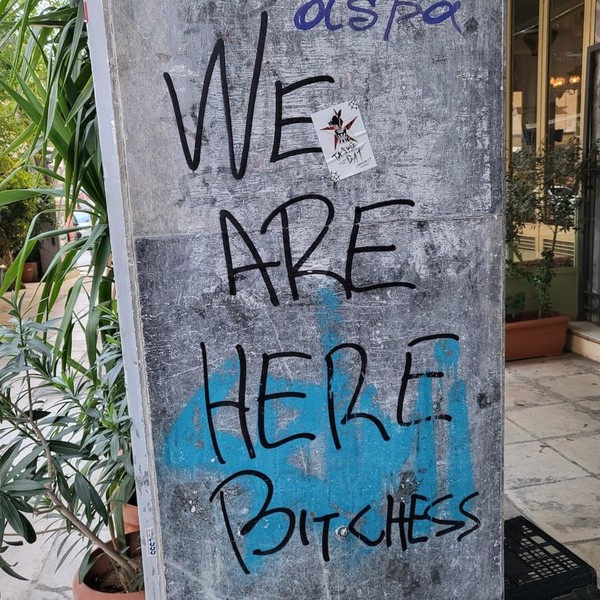 aspa
WE
ARE
HERE
BITCHESS